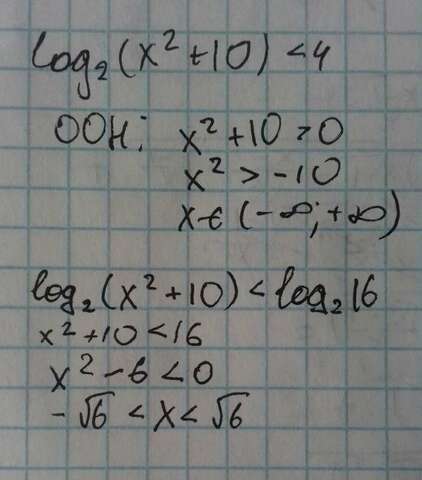 log₂(x²+10) < 4
ООН: x²+10 > 0
x² > -10
x ∈ (-∞; +∞)
log₂(x²+10) < log₂16
x²+10 < 16
x²-6 < 0
-√6 < x < √6